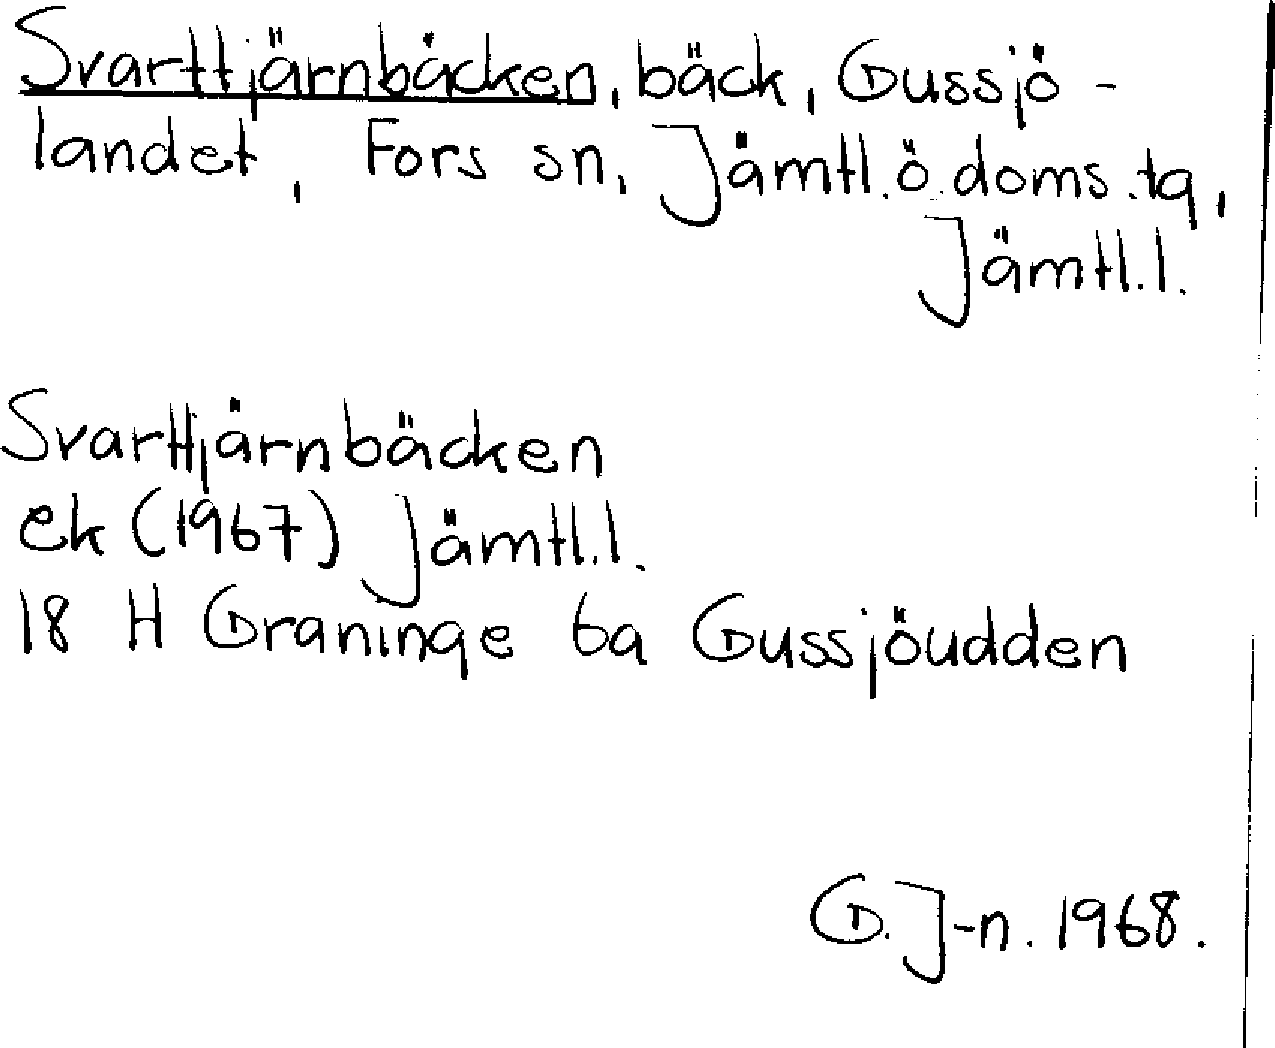 Svarttjärnbäcken, bäck, Gussjö-
landet, Fors sn, Jämtl. ö. doms. tg,
Jämtl. l.
Svarttjärnbäcken
ek (1967) Jämtl. l.
18 H Graninge 6a Gussjöudden
G. J-n. 1968.